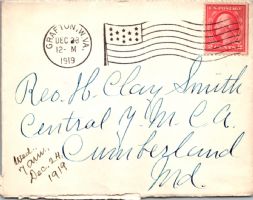 GRAFTON, W.VA.
DEC 23
12-M
1919
U.S. POSTAGE
Rev. H. Clay Smith
Central Y M C A
Cumberland
Md.
Wed.,
7 a.m.,
Dec. 24,
1919